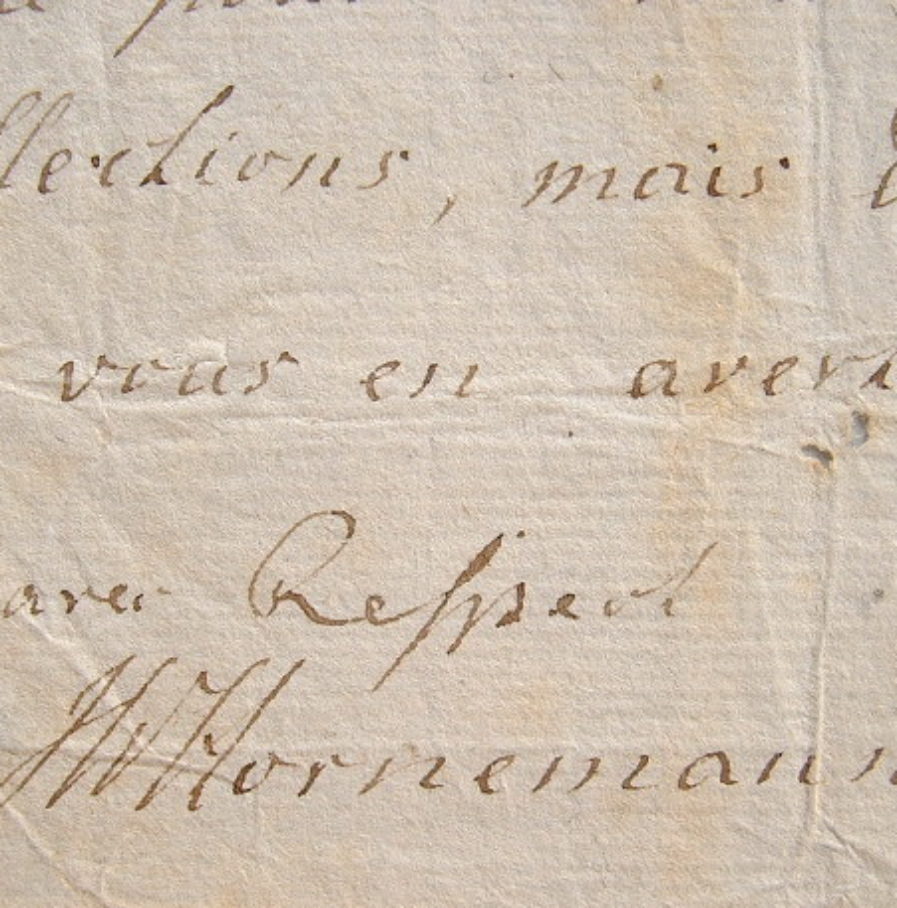 pour
llections, mais
vous en avert
avec Respect
JWHornemann